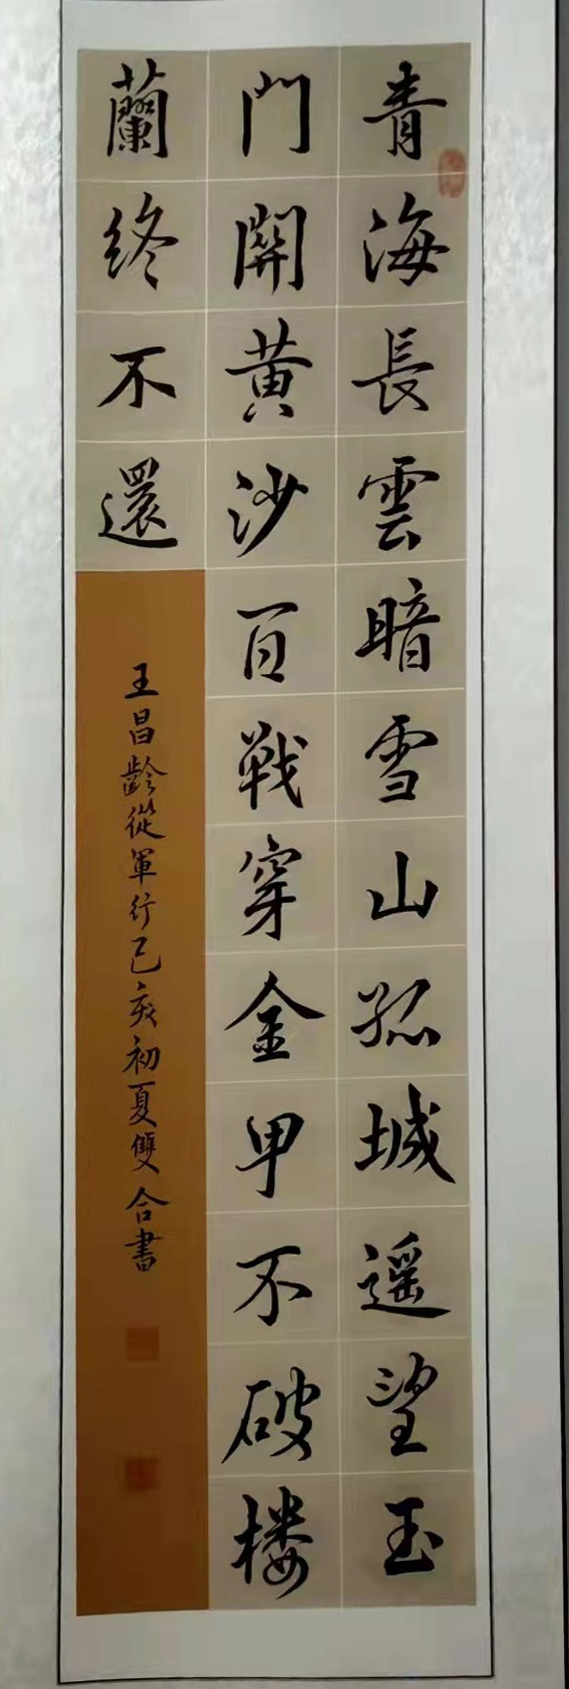 青海長雲暗雪山孤城遥望玉
門關黄沙百戰穿金甲不破楼
蘭终不還
王昌齡從軍行己亥初夏雙合書